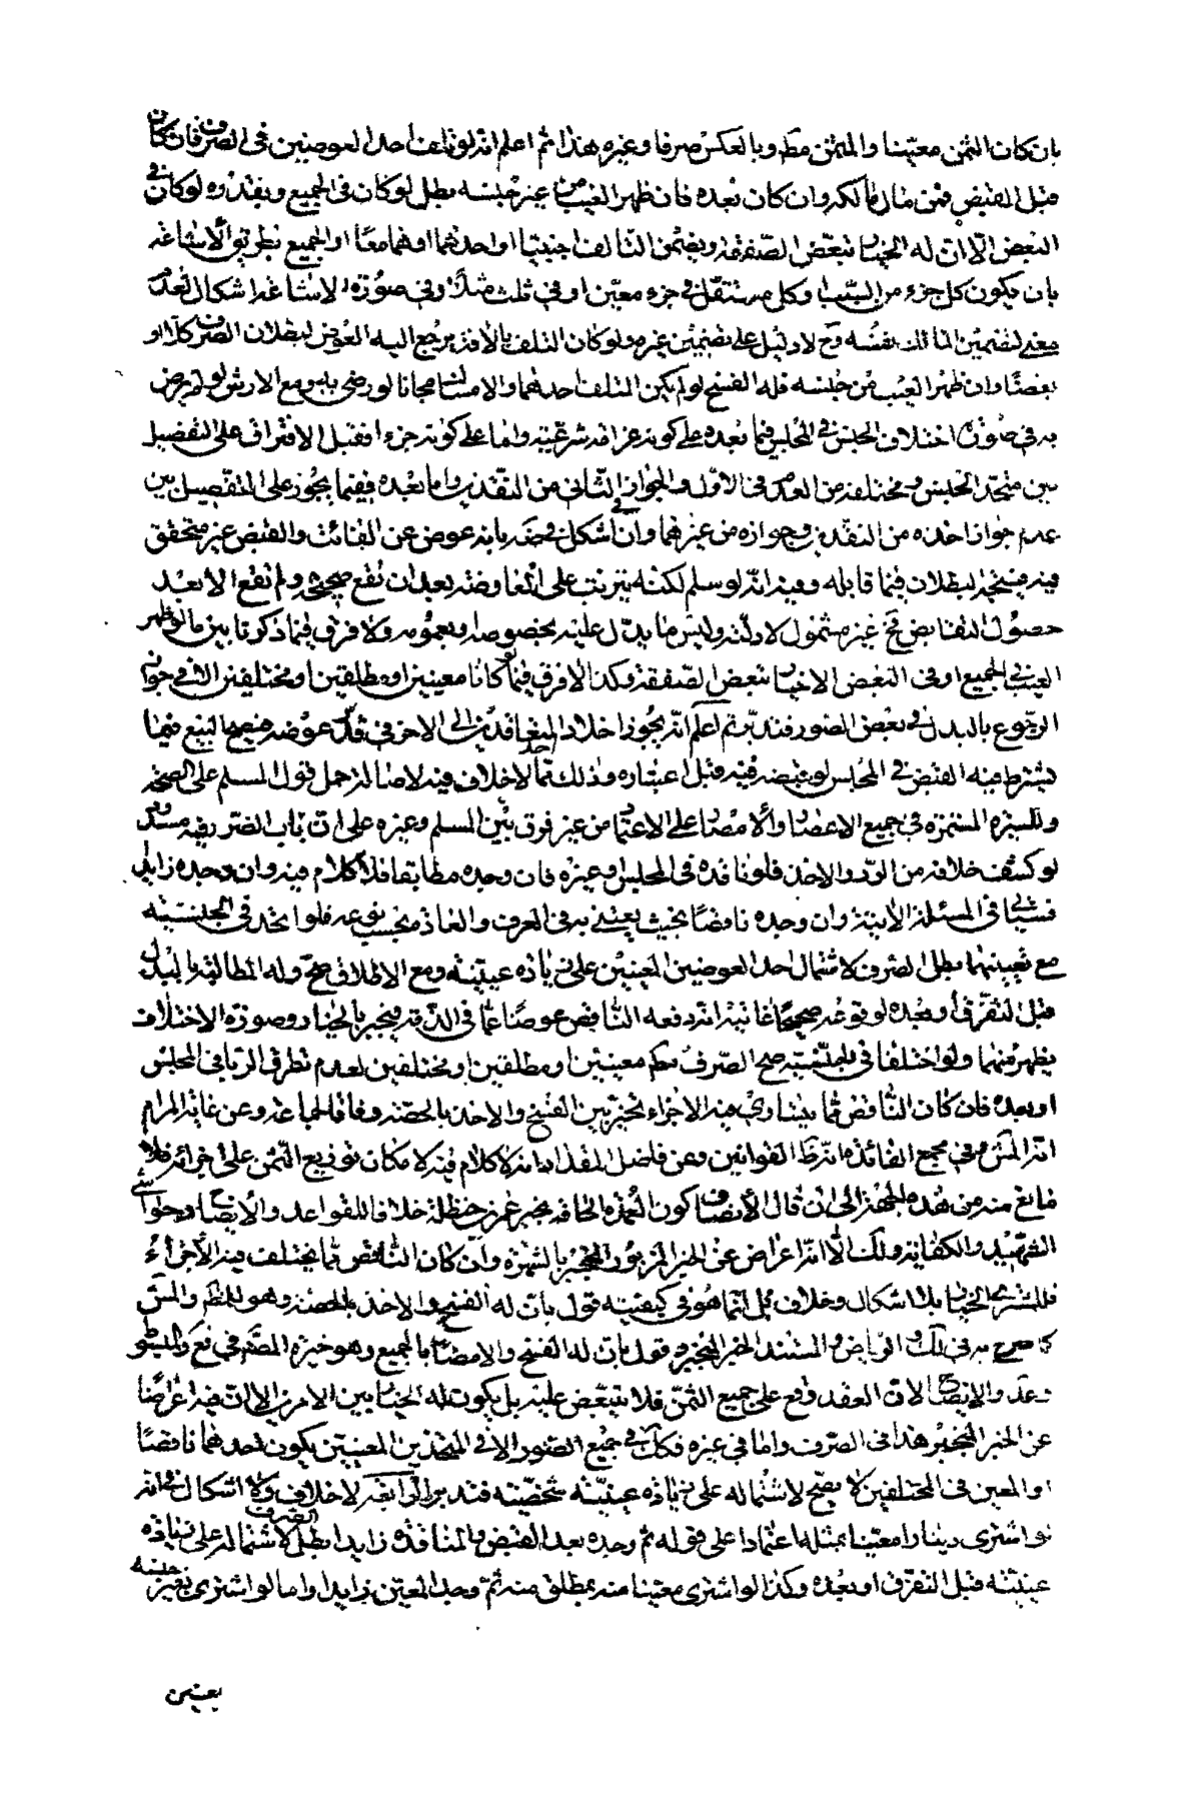 بان كان الثمن معيّنا والمثمن مط وبالعكس صرفا وغيره هذا ثم اعلم انه لو تلف احد العوضين في الصرف فان كان
قبل القبض فمن مال مالكه وان كان بعده فان ظهر العيب من غير جنسه بطل لو كان في الجميع وبقدره لو كان في
البعض الّا ان له الخيار لتبعّض الصفقة ويضمن التالف اجنبيّا او احدهما او هما معًا او الجميع بطريق الاشاعة
بان يكون كل جزء من السبب وكل مستقل في جزء معيّن او في ثلث مثلا وفي صورة الاشاعة اشكال لعدم
معنى لتضمين المالك نفسه وح لا دليل على تضمين غيره ولو كان التلف بالآفة يرجع اليه العوض لبطلان الصرف كلا او
بعضًا وان ظهر العيب من جنسه فله الفسخ لو لم يكن التلف احدهما والامساك مجانا لو رضي به ومع الارش لو لم يرض
به في صورة اختلاف الجنس في المجلس فيما بعده على كونه غرامة شرعيّة واما على كونه جزء فقبل الافتراق على التفصيل
بين متحد الجنس ومختلفه من العدم في الاول والجواز في الثاني من النقدين واما بعده ففيما يجوز على التفصيل بين
عدم جواز اخذه من النقدين وجوازه من غيرهما وان اشكل في بانه عوض عن الفائت والقبض غير متحقق
فيه فيتجه البطلان فيما قابله وفيه انه لو سلم لكنه يترتب على المعاوضة بعد ان تقع صحيحة ولم تقع الا بعد
حصول التقابض فح غير مشمول لادلته وليس ما يدل عليه بخصوصه او بعمومه ولا فرق فيما ذكرنا بين ما لو ظهر
العيب في الجميع او في البعض الا خيار تبعض الصفقة وكذا لا فرق فيما لو كانا معينين او مطلقين او مختلفين الا في جواز
الرجوع بالبدل في بعض الصور فتدبر ثم اعلم انه يجوز اخلاد احد المتعاقدين الى الاخر في قدر عوضه فيصح البيع فيما
يشترط فيه القبض في المجلس لو قبضه فيه قبل اعتباره وذلك مما لا خلاف فيه لاصالة حمل قول المسلم على الصحة
وللسيرة المستمرة في جميع الاعصار والامصار على الاعتماد من غير فرق بين المسلم وغيره على ان باب الضرر فيه مسدود
لو كشف خلافه من الرد والاخذ فلو نقده في المجلس وغيره فان وجده مطابقا فلا كلام فيه وان وجده زايدا
فسيأتي في المسئلة الآتية وان وجده ناقصًا بحيث يعتنى به في العرف والعادة بحسب نوعه فلو اتحد في الجنسيّة
مع تعيينهما بطل الصرف لاشتمال احد العوضين المعينين على زيادة عينيّة ومع الاطلاق صحّ وله المطالبة بالبدل
قبل التفرّق او بعده لوقوعه صحيحًا غايته انه دفعه الناقص عوضًا عما في الذمة فينجبر بالخيار وصورة الاختلاف
يظهر منهما ولو اختلفا في الجنسيّة صح الصرف بحكم معينين او مطلقين او مختلفين لعدم تطرق الربا في المجلس
او بعده فان كان الناقص مما يتساوى فيه الاجزاء تخير بين الفسخ والاخذ بالحصّة وفاقا لجماعة وعن غاية المرام
انه المش وفي مجمع الفائدة انه القوانين وعن فاضل المقداد انه لا كلام فيه لامكان توزيع الثمن على اجزائه فلا
مانع منه من هذه الجهة الى ان قال الانصاف كون العمدة الحاقه بخبر عمر بن حنظلة خلافا للقواعد والايضاح وحواشي
الشهيد والكفاية وتلك الّا انه اعراض عن الخبر المزبور المنجبر بالشهرة وان كان الناقص مما يختلف فيه الاجزاء
فللمشتري الخيار بلا اشكال وخلاف بل انما هو في كيفيته قول بان له الفسخ والاخذ بالحصّة وهو للمش والمش
كما صرح به في لك والرياض والمستند الخبر المنجبر وقول بان له الفسخ والامضاء بالجميع وهو خيرة المصنف في فع والمبسوط
وعد والايضاح لان العقد وقع على جميع الثمن فلا يتبعّض عليه بل يكون له الخيار بين الامرين الّا ان فيه اعراضًا
عن الخبر المنجبر هذا في الصرف واما في غيره فكك في جميع الصور الا في المتحدين المعينين يكون احدهما ناقصًا
او المعين في المختلفين لا يصحّ لاشتماله على زيادة عينيّة شخصيّة فتدبر الرابعة لا خلاف ولا اشكال في انه
لو اشترى دينارا معيّنا بمثله اعتمادا على قوله ثم وجده بعد القبض والمناقدة زايدا بطل الصرف لاشتماله على زيادة
عينيّة قبل التفرّق او بعده وكذا لو اشترى معيّنا منه بمطلق منه ثمّ وجد المعيّن زايدا واما لو اشترى بغير جنسه
بعينين